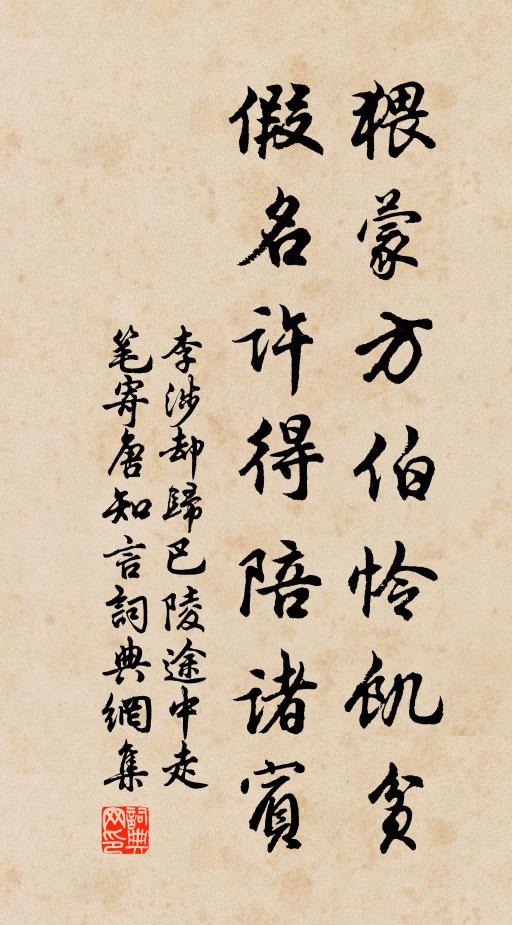 猥蒙方伯怜飢貧
假名許得陪諸賓
李涉却歸巴陵途中走
笔寄唐知言詞典網集
詞典网印